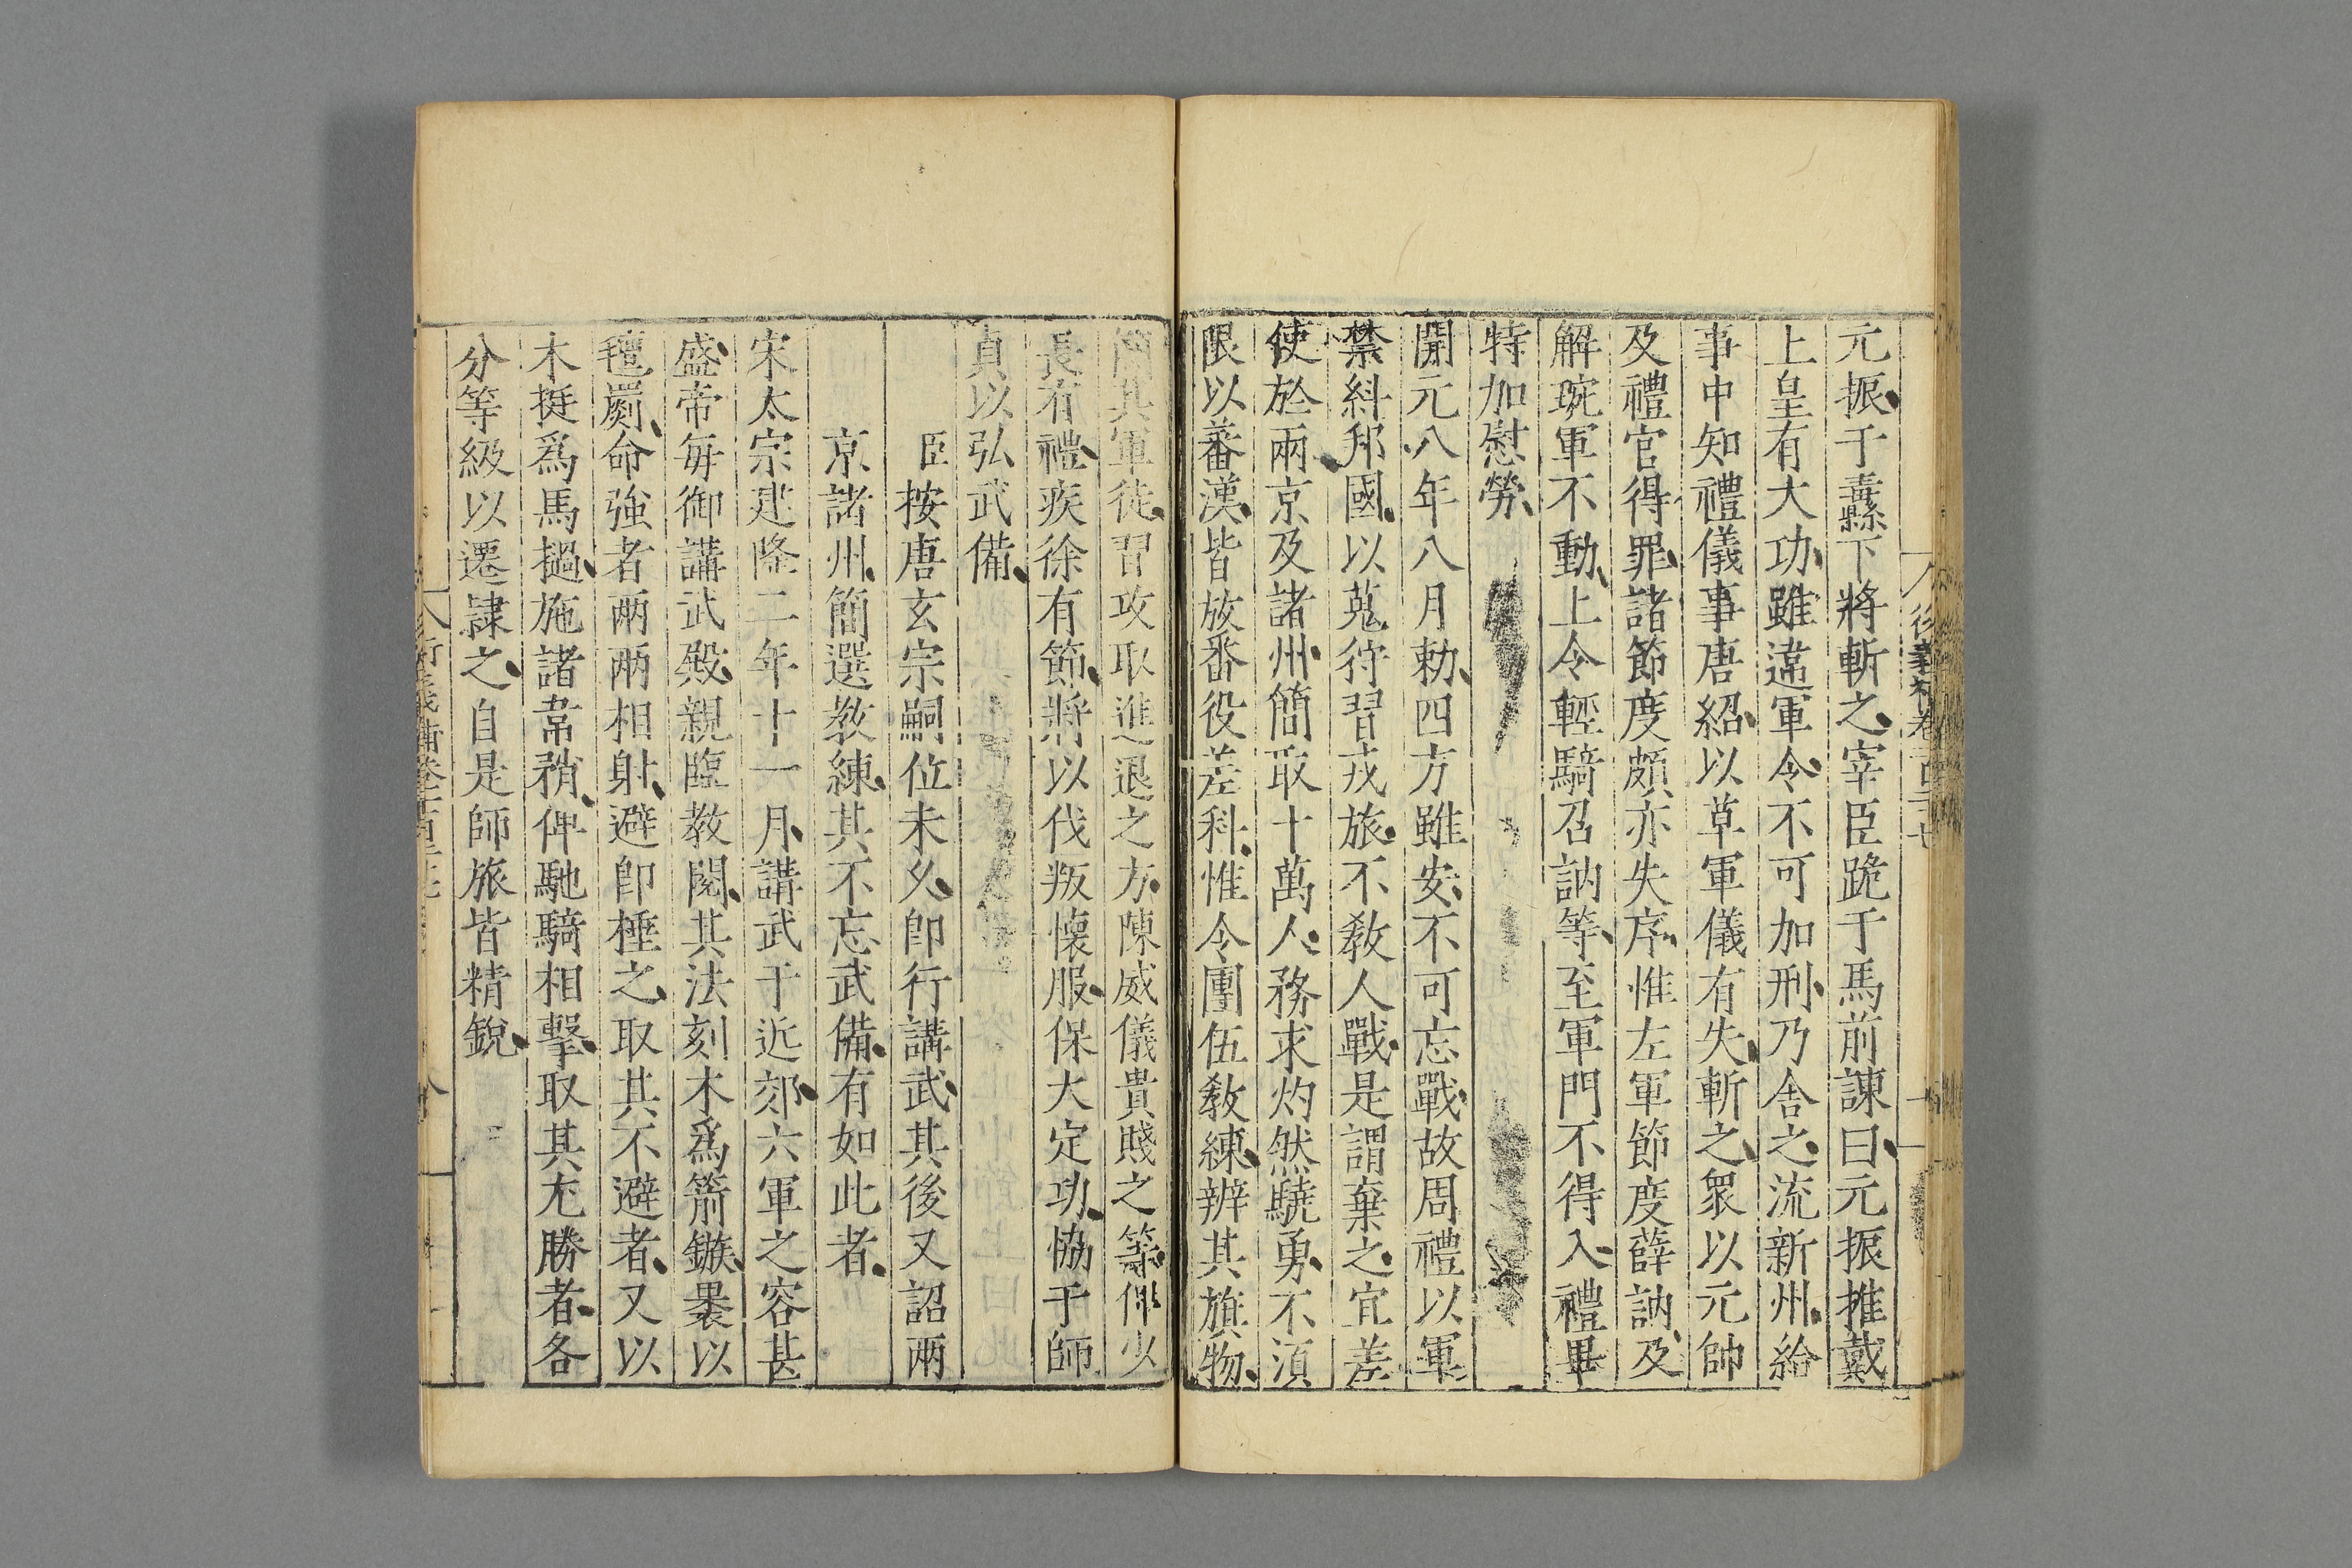 元振于纛下將斬之宰臣跪于馬前諫曰元振推戴
上皇有大功雖違軍令不可加刑乃舍之流新州給
事中知禮儀事唐紹以草軍儀有失斬之衆以元帥
及禮官得罪諸節度頗亦失序惟左軍節度薛訥及
解琬軍不動上令輕騎召訥等至軍門不得入禮畢
特加慰勞
開元八年八月勅四方雖安不可忘戰故周禮以軍
禁糾邦國以蒐狩習戎旅不敎人戰是謂棄之宜差
使於兩京及諸州簡取十萬人務求灼然驍勇不須
限以蕃漢皆放番役差科惟令團伍敎練辨其旗物
簡其軍徒習攻取進退之方陳威儀貴賤之等俾少
長有禮疾徐有節將以伐叛懷服保大定功協于師
貞以弘武備
臣按唐玄宗嗣位未久卽行講武其後又詔兩
京諸州簡選敎練其不忘武備有如此者
宋太宗建隆二年十一月講武于近郊六軍之容甚
盛帝每御講武殿親臨教閱其法刻木爲箭鏃裹以
氊罽命強者兩兩相射避卽棰之取其不避者又以
木挺爲馬撾施諸韋矟俾馳騎相擊取其尤勝者各
分等級以遷隸之自是師旅皆精銳